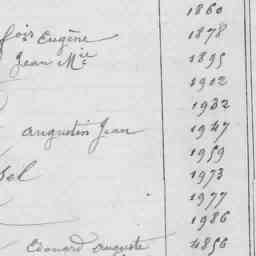 1860
fois Eugène 1878
Jean Mie 1895
1912
1932
Augustin Jean 1947
1959
sel 1973
1977
1986
Edouard Auguste 4856